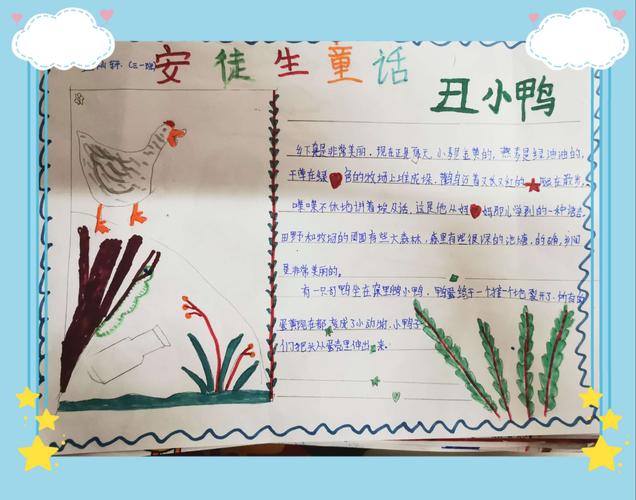 雨轩.(三一班)
安徒生童话
丑小鸭
乡下真是非常美丽.现在正是夏天.小麦是金黄的,燕麦是绿油油的,
干草在绿色的牧场上堆成垛.鹳鸟迈着又长又红的腿在散步,
喋喋不休地讲着埃及话.这是他从妈妈那儿学到的一种语言.
田野和牧场的周围有些大森林.森里有些很深的池塘,的确,乡间
是非常美丽的。
有一只母鸭坐在窠里
一个接一个地裂开了.所有的
蛋黄现在都变成了小动物.小鸭子
们把头从蛋壳里伸出来.